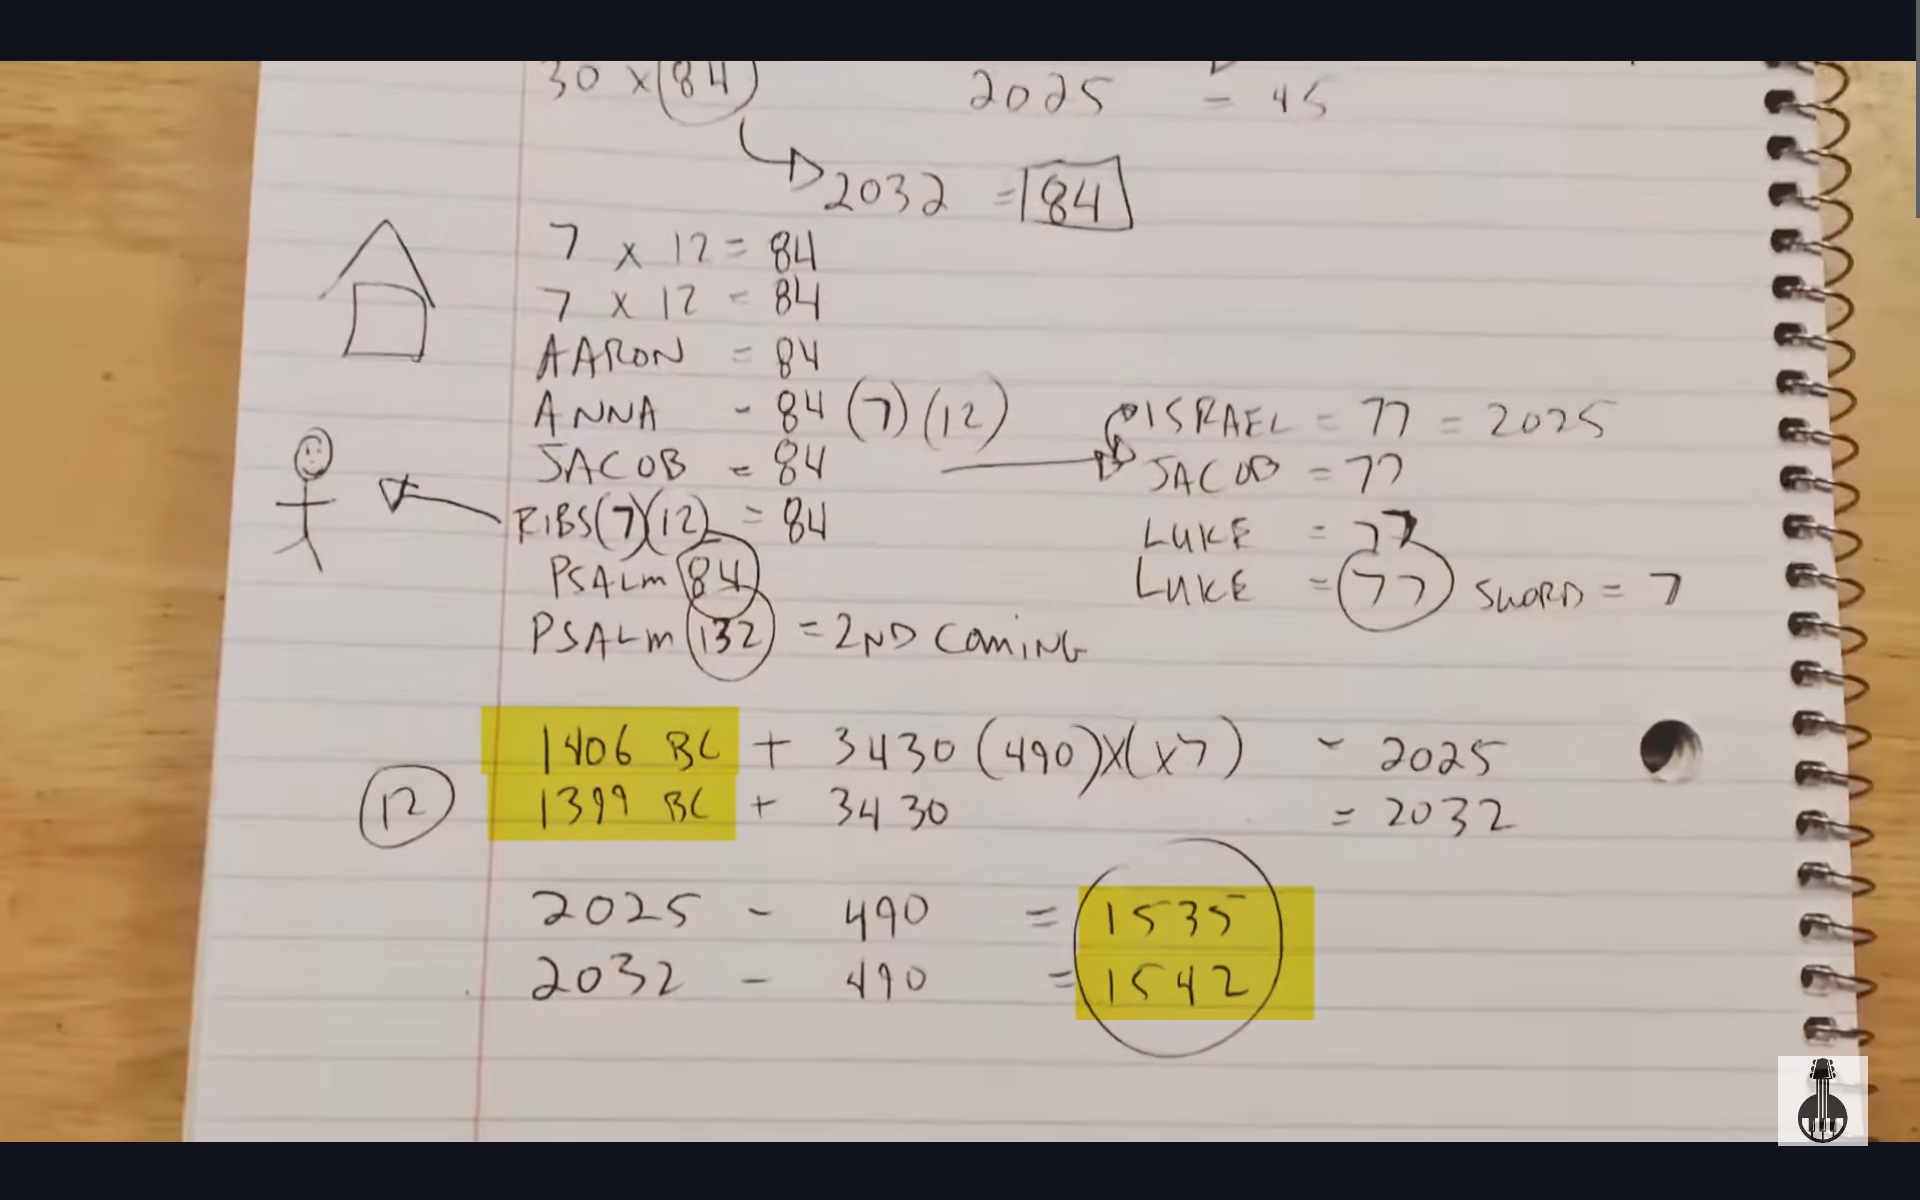 30 x 84 2025 = 45
2032 = 84
7 x 12 = 84
7 x 12 = 84
AARON = 84
ANNA - 84 (7)(12) ISRAEL = 77 = 2025
JACOB = 84 JACOB = 77
RIBS(7)(12) = 84 LUKE = 77
PSALM 84 LUKE = 77 SWORD = 7
PSALM 132 = 2ND COMING
1406 BC + 3430 (490)x(x7) - 2025
12 1399 BC + 3430 = 2032
2025 - 490 = 1535
2032 - 490 = 1542